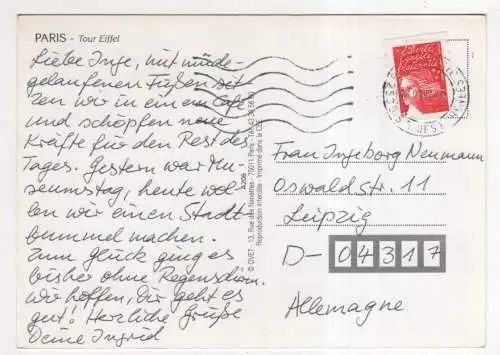 PARIS - Tour Eiffel
Liebe Inge, mit müde-
gelaufenen Füßen sit-
zen wir in einem Café
und schöpfen neue
Kräfte für den Rest des
Tages. Gestern war Mu-
seumstag, heute wol-
len wir einen Stadt-
bummel machen.
Zum Glück ging es
bisher ohne Regenschirm.
Wir hoffen, Dir geht es
gut! Herzliche Grüße
Deine Ingrid
© OVET - 13, Rue des Nanettes - 75011 Paris
Reproduction interdite - Imprimé dans la CEE
Liberté
Egalité
Fraternité
Frau Ingeborg Neumann
Oswaldstr. 11
Leipzig
D- 04317
Allemagne